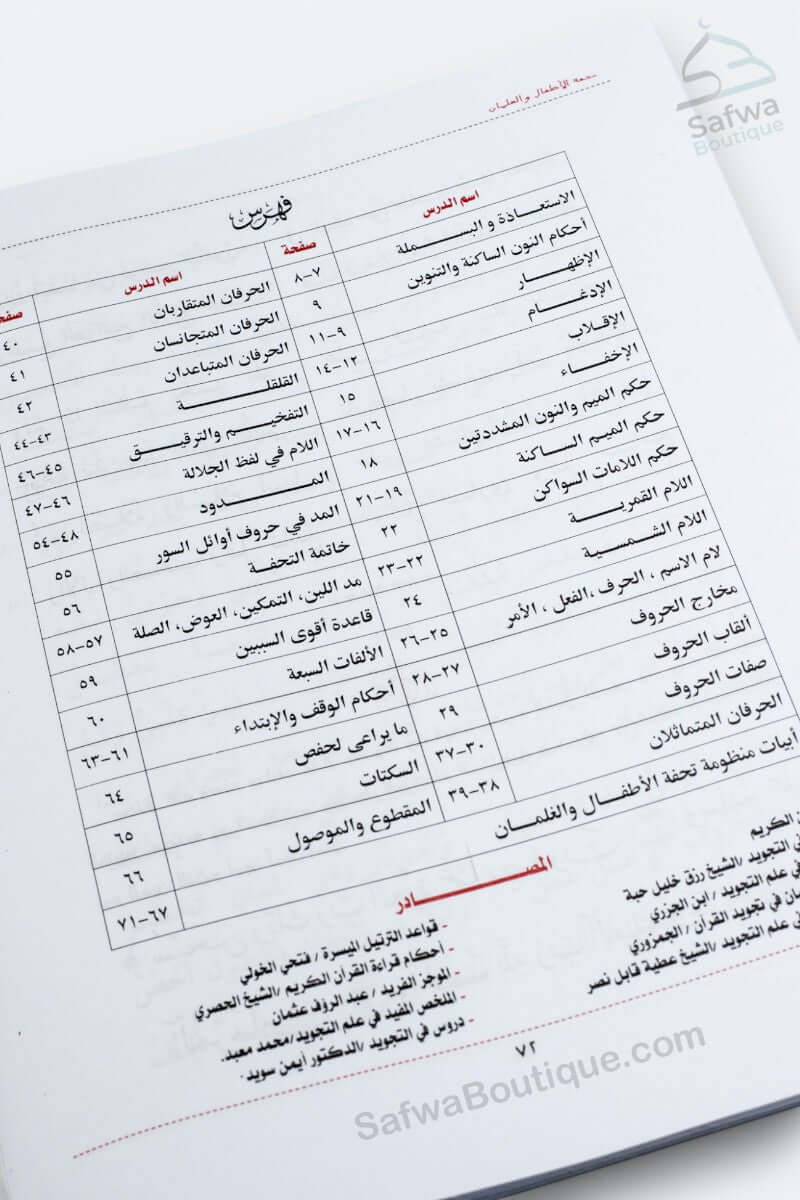 تحفة الأطفال والغلمان
فهرس
اسم الدرس صفحة اسم الدرس صفحة
الاستعاذة و البسملة ٧-٨ الحرفان المتقاربان ٤٠
أحكام النون الساكنة والتنوين ٩ الحرفان المتجانسان ٤١
الإظهار ٩-١١ الحرفان المتباعدان ٤٢
الإدغام ١٢-١٤ القلقلة ٤٣-٤٤
الإقلاب ١٥ التفخيم والترقيق ٤٥-٤٦
الإخفاء ١٦-١٧ اللام في لفظ الجلالة ٤٦-٤٧
حكم الميم والنون المشددتين ١٨ المدود ٤٨-٥٤
حكم الميم الساكنة ١٩-٢١ المد في حروف أوائل السور ٥٥
حكم اللامات السواكن ٢٢ خاتمة التحفة ٥٦
اللام القمرية ٢٢-٢٣ مد اللين، التمكين، العوض، الصلة ٥٧-٥٨
اللام الشمسية ٢٤ قاعدة أقوى السببين ٥٩
لام الاسم ، الحرف ،الفعل ، الأمر ٢٥-٢٦ الألفات السبعة ٦٠
مخارج الحروف ٢٧-٢٨ أحكام الوقف والإبتداء ٦١-٦٣
ألقاب الحروف ٢٩ ما يراعى لحفص ٦٤
صفات الحروف ٣٠-٣٧ السكتات ٦٥
الحرفان المتماثلان ٣٨-٣٩ المقطوع والموصول ٦٦
أبيات منظومة تحفة الأطفال والغلمان ٦٧-٧١
المصادر
الكريم
التجويد /الشيخ رزق خليل حبة
علم التجويد / ابن الجزري
في تجويد القرآن / الجمزوري
علم التجويد /الشيخ عطية قابل نصر
- قواعد الترتيل الميسرة / فتحي الخولي
- أحكام قراءة القرآن الكريم /الشيخ الحصري
- الموجز الفريد / عبد الرؤف عثمان
- الملخص المفيد في علم التجويد/محمد معبد.
- دروس في التجويد /الدكتور أيمن سويد.
٧٢
Safwa
Boutique
SafwaBoutique.com